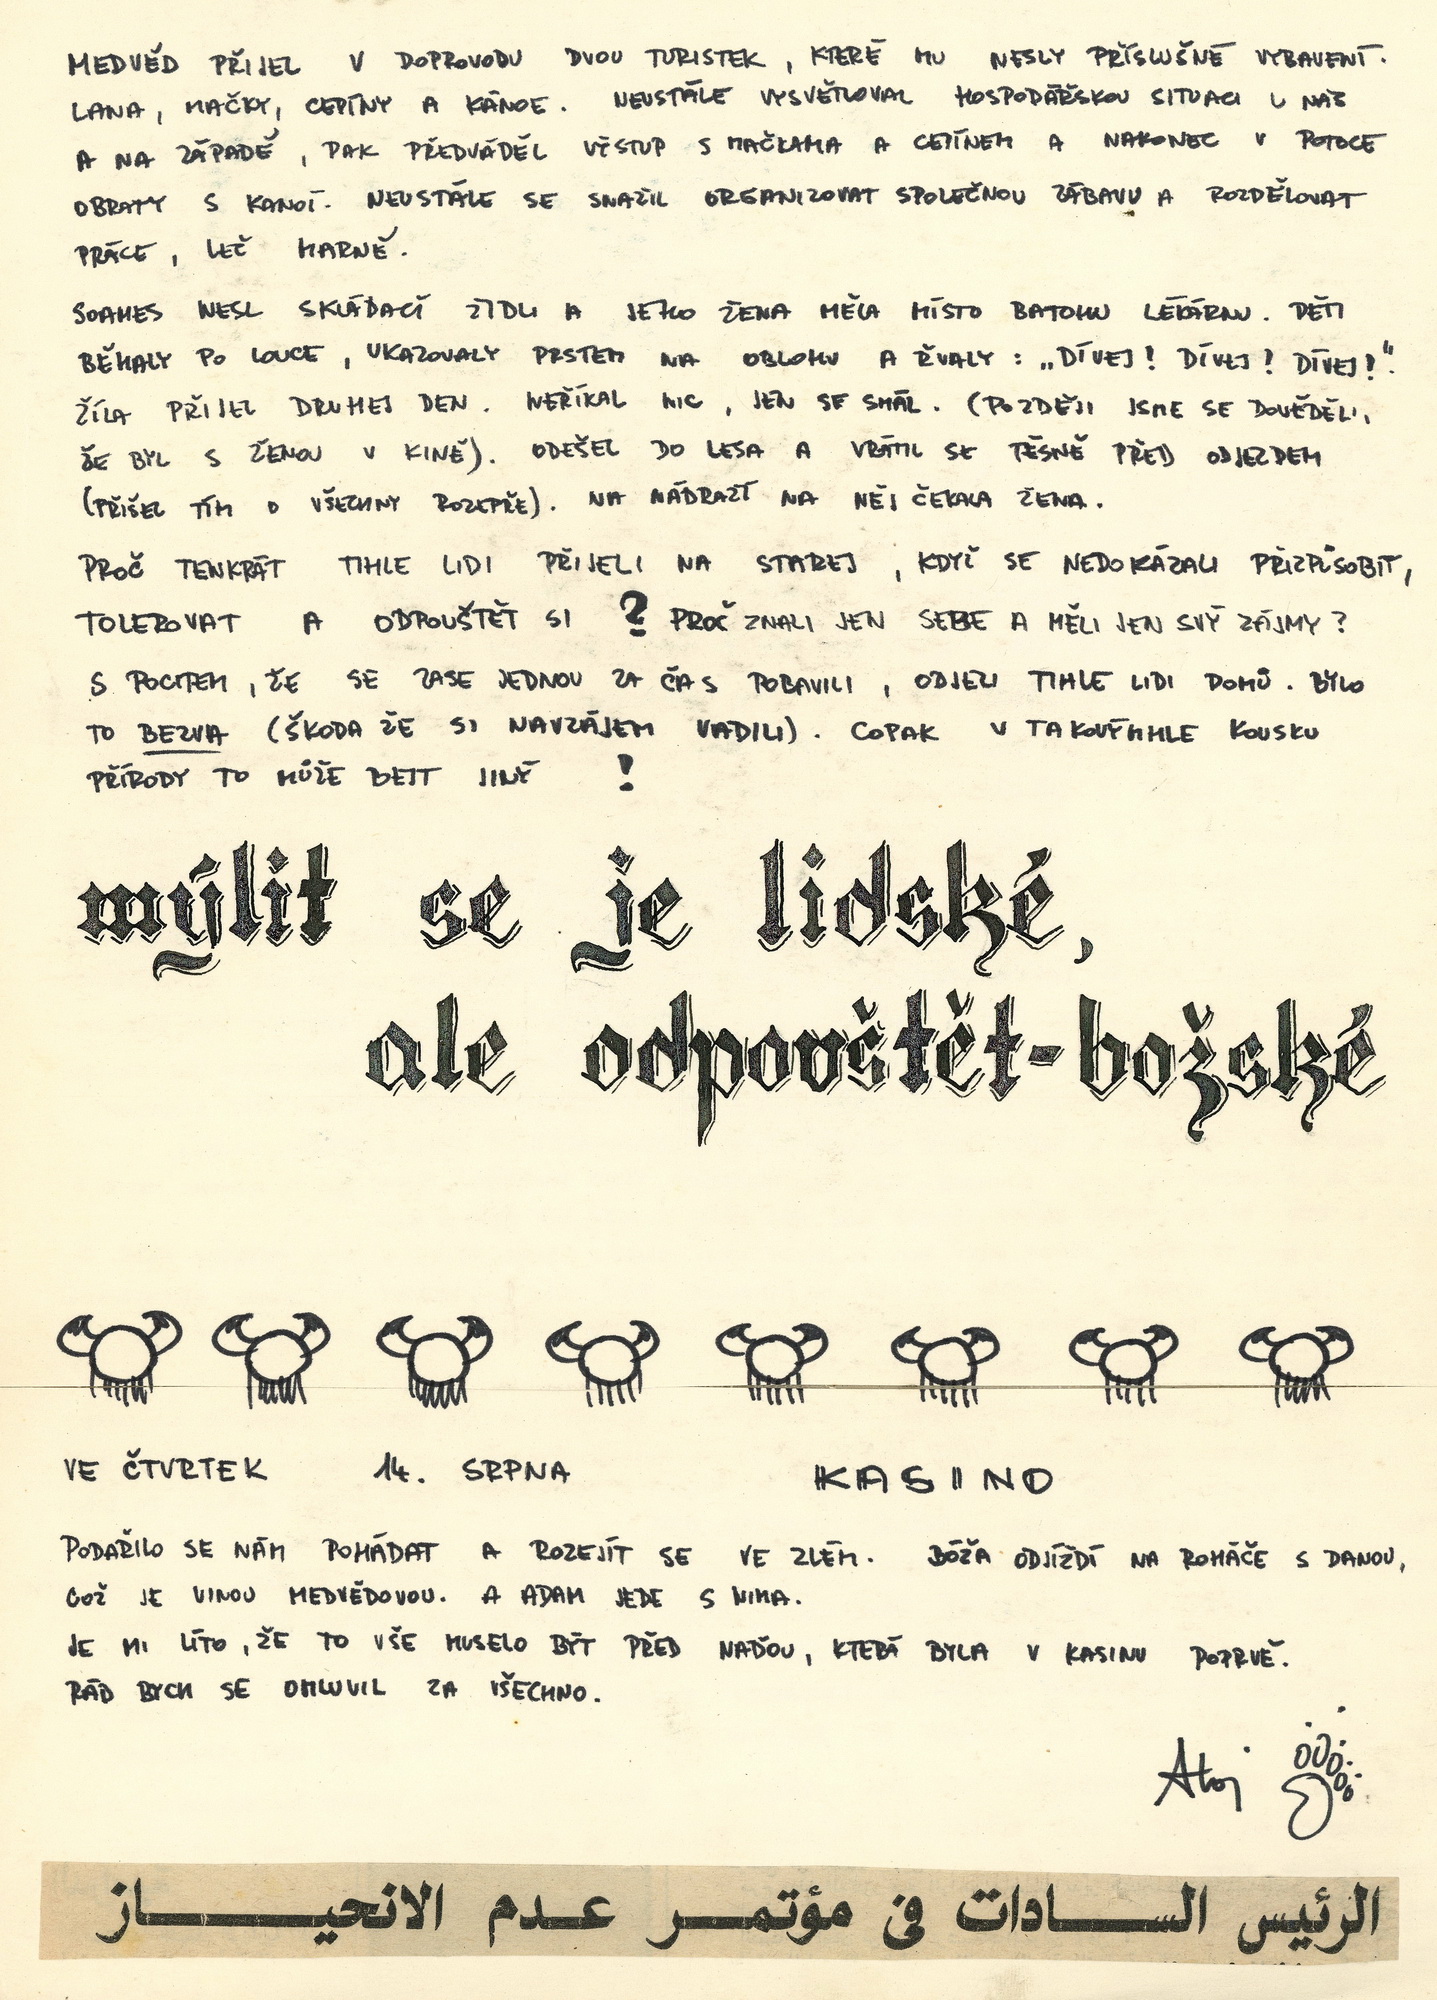 MEDVĚD PŘIJEL V DOPROVODU DVOU TURISTEK, KTERÉ MU NESLY PŘÍSLUŠNÉ VYBAVENÍ.
LANA, MAČKY, CEPÍNY A KÁNOE. NEUSTÁLE VYSVĚTLOVAL HOSPODÁŘSKOU SITUACI U NÁS
A NA ZÁPADĚ, PAK PŘEDVÁDĚL VÝSTUP S MAČKAMA A CEPÍNEM A NAKONEC V POTOCE
OBRATY S KANOÍ. NEUSTÁLE SE SNAŽIL ORGANIZOVAT SPOLEČNOU ZÁBAVU A ROZDĚLOVAT
PRÁCE, LEČ MARNĚ.
SOAMES NESL SKLÁDACÍ ŽIDLI A JEHO ŽENA MĚLA MÍSTO BATOHU LÉKÁRNU. DĚTI
BĚHALY PO LOUCE, UKAZOVALY PRSTEM NA OBLOHU A ŘVALY: „DÍVEJ! DÍVEJ! DÍVEJ!".
ŽÍLA PŘIJEL DRUHEJ DEN. NEŘÍKAL NIC, JEN SE SMÁL. (POZDĚJI JSME SE DOVĚDĚLI,
ŽE BYL S ŽENOU V KINĚ). ODEŠEL DO LESA A VRÁTIL SE TĚSNĚ PŘED ODJEZDEM
(PŘIŠEL TÍM O VŠECHNY ROZEPŘE). NA NÁDRAŽÍ NA NĚJ ČEKALA ŽENA.
PROČ TENKRÁT TIHLE LIDI PŘIJELI NA STAREJ, KDYŽ SE NEDOKÁZALI PŘIZPŮSOBIT,
TOLEROVAT A ODPOUŠTĚT SI ? PROČ ZNALI JEN SEBE A MĚLI JEN SVÝ ZÁJMY?
S POCITEM, ŽE SE ZASE JEDNOU ZA ČAS POBAVILI, ODJELI TIHLE LIDI DOMŮ. BYLO
TO BEZVA (ŠKODA ŽE SI NAVZÁJEM VADILI). COPAK V TAKOVÝMHLE KOUSKU
PŘÍRODY TO MŮŽE BEJT JINÝ !
mýlit se je lidské,
ale odpouštět-božské
VE ČTVRTEK 14. SRPNA KASINO
PODAŘILO SE NÁM POHÁDAT A ROZEJÍT SE VE ZLÉM. BÓŽA ODJÍŽDÍ NA ROHÁČE S DANOU,
COŽ JE VINOU MEDVĚDOVOU. A ADAM JEDE S NIMA.
JE MI LÍTO, ŽE TO VŠE MUSELO BÝT PŘED NAĎOU, KTERÁ BYLA V KASINU POPRVÉ.
RÁD BYCH SE OMLUVIL ZA VŠECHNO.
الرئيس الســـادات فى مؤتمـــر عـدم الانحيـــــاز